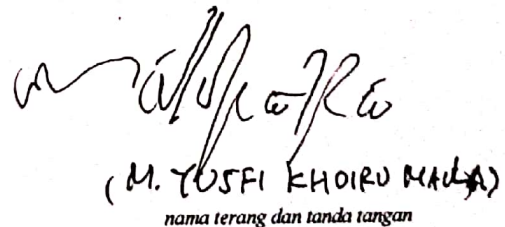 (M. YUSFI KHOIRU MAULA)
nama terang dan tanda tangan